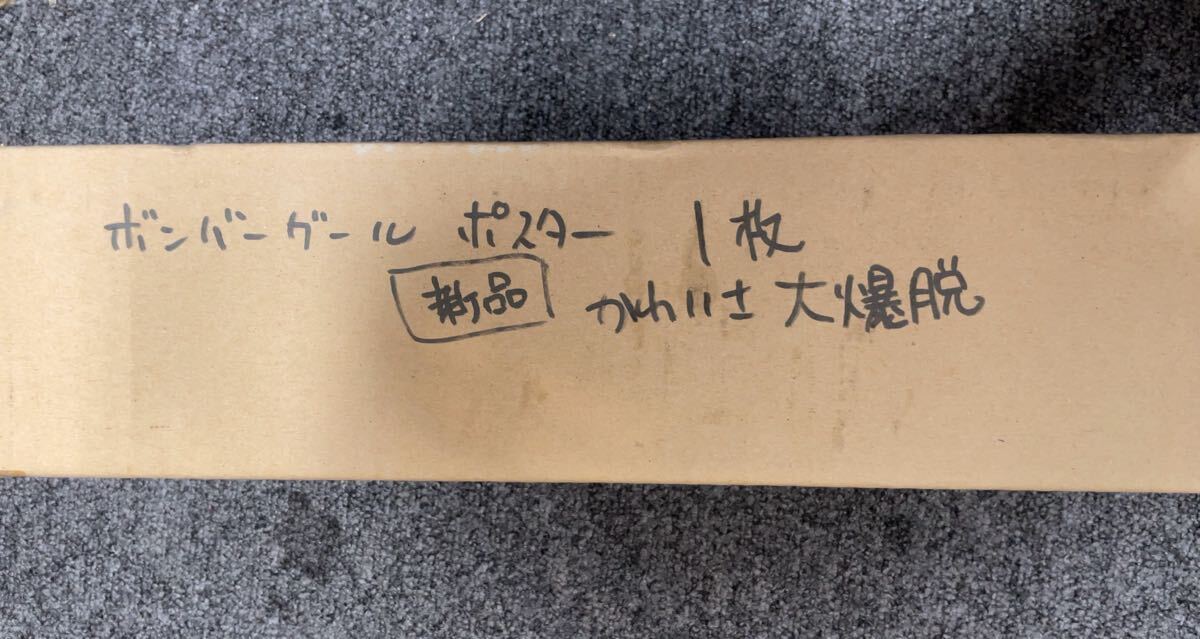 ボンバーガール ポスター 1枚
新品 かわいさ大爆脱